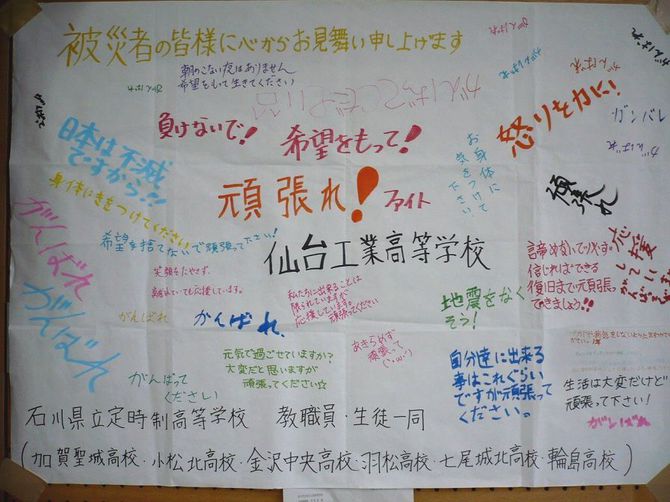 被災者の皆様に心からお見舞い申し上げます
朝のこない夜はありません
希望をもって生きてください
がんばれ
がんばれ
がんばれ
がんばれ
負けないで!
希望をもって!
怒りを力に!
ガンバレ
がんばれ
日本は不滅
ですから!!
お身体に
気をつけて
下さい
頑張れ!
ファイト
頑張れ
身体にきをつけてください
希望を捨てないで頑張って下さい!
仙台工業高等学校
がんばれ
がんばれ
笑顔をたやさず
離れていても応援しています。
私たちに出来ることは
限られていますが
応援しています。
頑張ってください
地震をなく
そう!
信じればできる
復旧まで元気に頑張って
応援
しています
がんばれ
がんばれ
あきらめず
頑張って
元気で過ごせていますか?
大変だと思いますが
頑張ってください☆
がんばって
ください
自分達に出来る
事はこれぐらい
ですが頑張って
ください。
生活は大変だけど
頑張って下さい!
がんばれ
石川県立定時制高等学校 教職員・生徒一同
(加賀聖城高校・小松北高校・金沢中央高校・羽松高校・七尾城北高校・輪島高校)